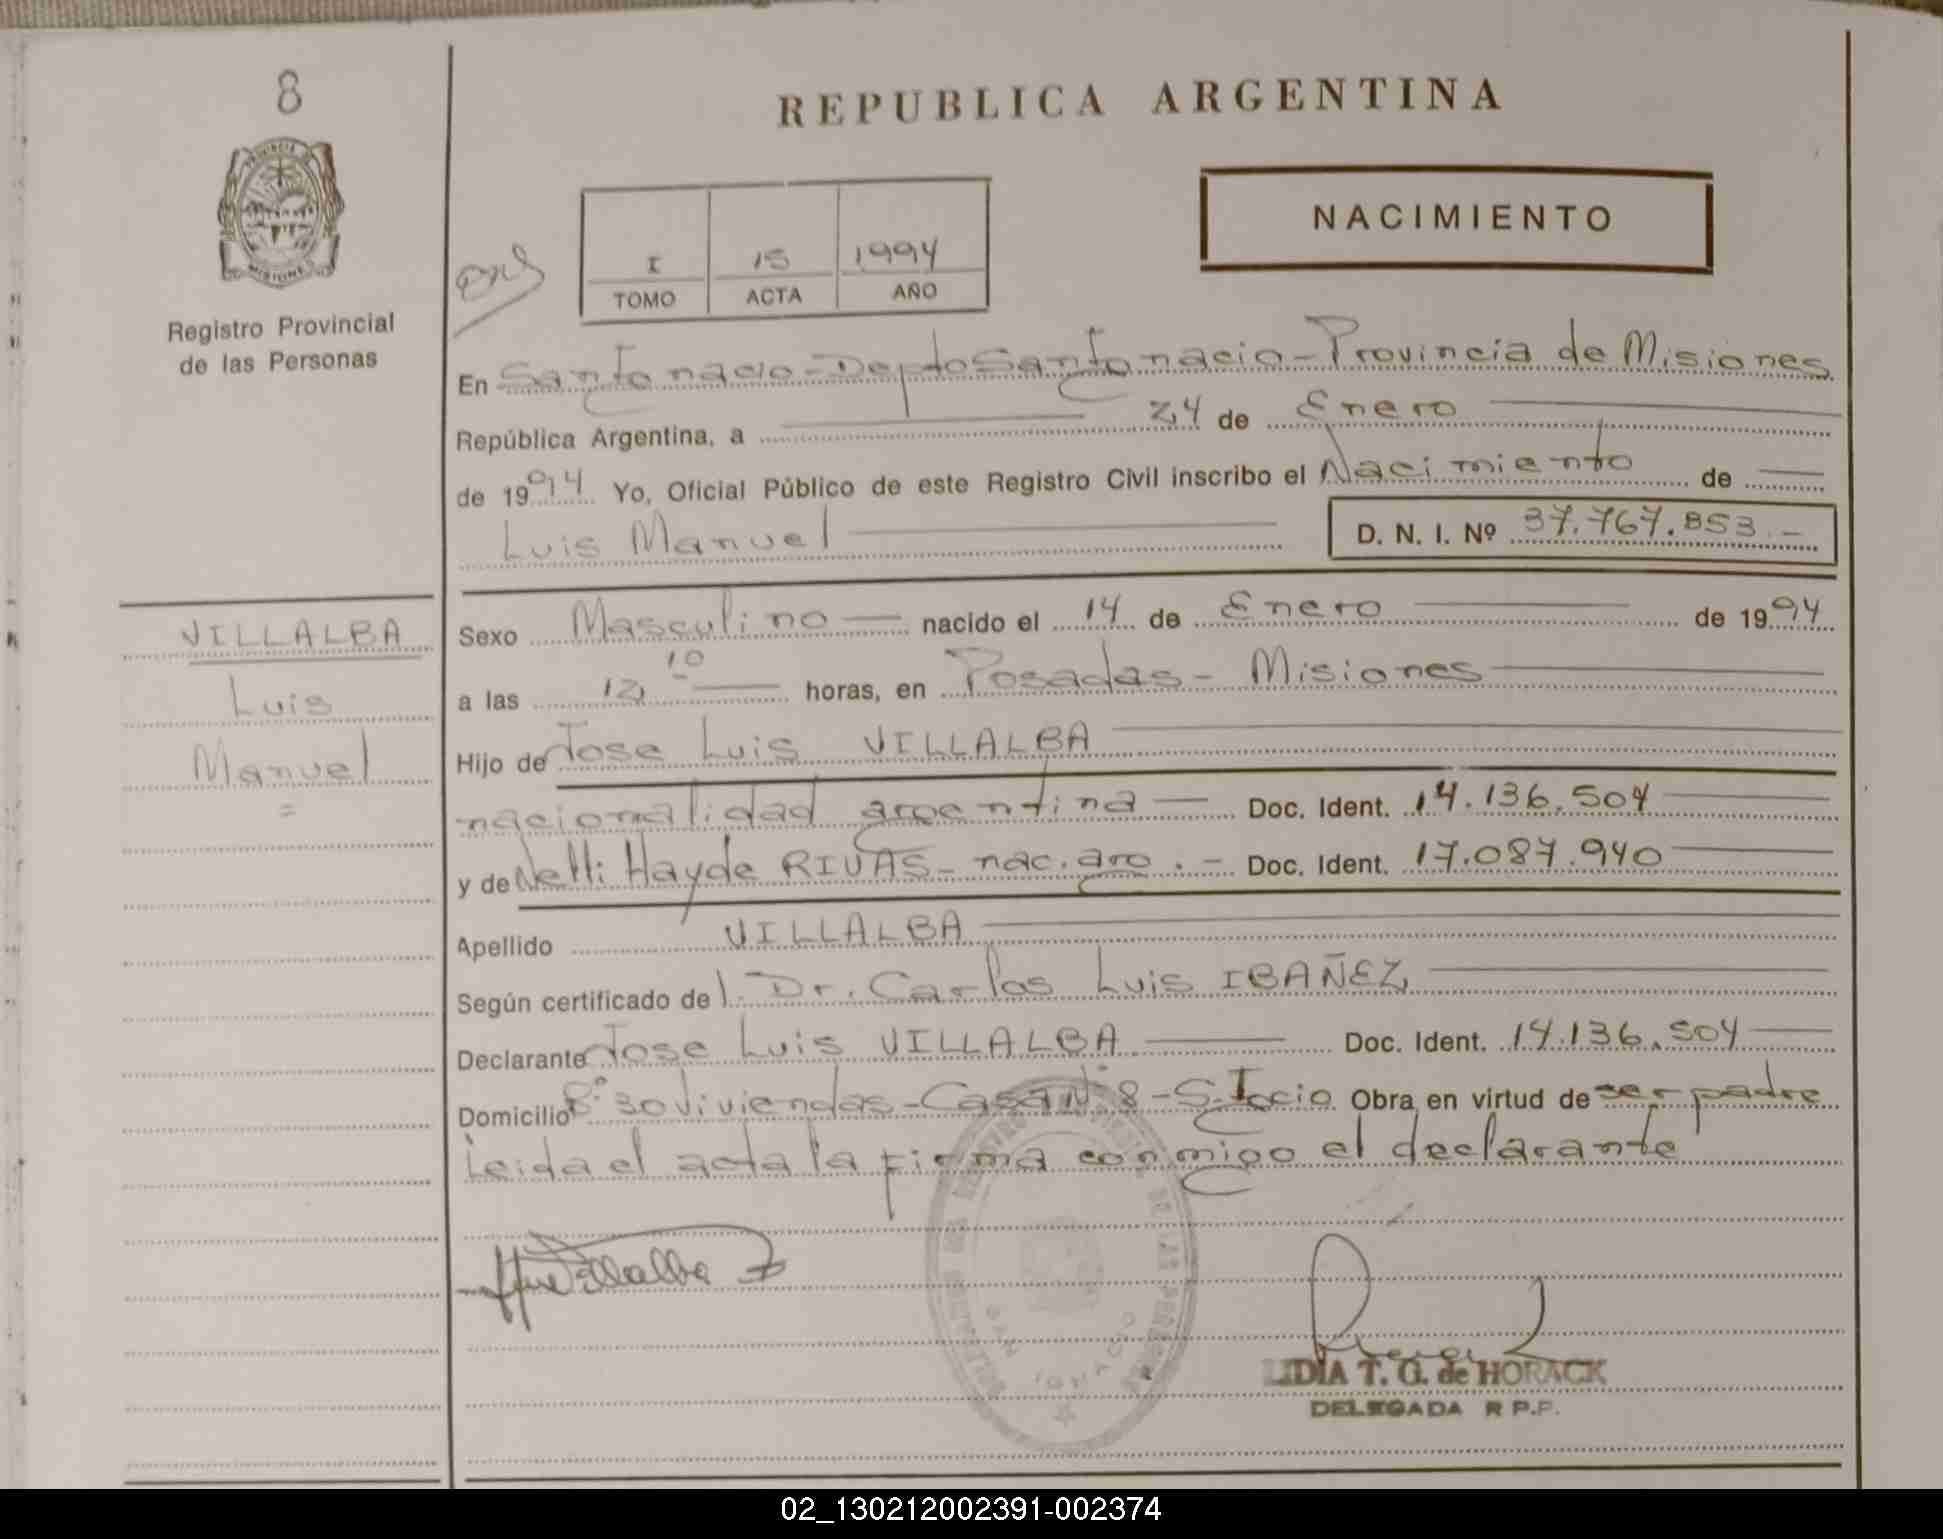 8
REPUBLICA ARGENTINA
NACIMIENTO
PROVINCIA DE
MISIONES
I 15 1994
TOMO ACTA AÑO
Registro Provincial
de las Personas
En San Ignacio - Depto San Ignacio - Provincia de Misiones
República Argentina, a 24 de Enero
de 1994 Yo, Oficial Público de este Registro Civil inscribo el Nacimiento de
Luis Manuel D. N. I. Nº 37.767.853.-
VILLALBA
Luis
Manuel
=
Sexo Masculino nacido el 14 de Enero de 1994
a las 12,10 horas, en Posadas - Misiones
Hijo de Jose Luis VILLALBA
nacionalidad argentina Doc. Ident. 14.136.504
y de Nelli Hayde RIVAS - nac. arg. - Doc. Ident. 17.087.940
Apellido VILLALBA
Según certificado del Dr. Carlos Luis IBAÑEZ
Declarante Jose Luis VILLALBA Doc. Ident. 14.136.504
Domicilio Bº 30 viviendas - Casa Nº 8 - S. Igcio Obra en virtud de ser padre
Leida el acta la firma conmigo el declarante
Villalba
SAN IGNACIO
LIDIA T. G. de HORACK
DELEGADA R P.P.
02_130212002391-002374